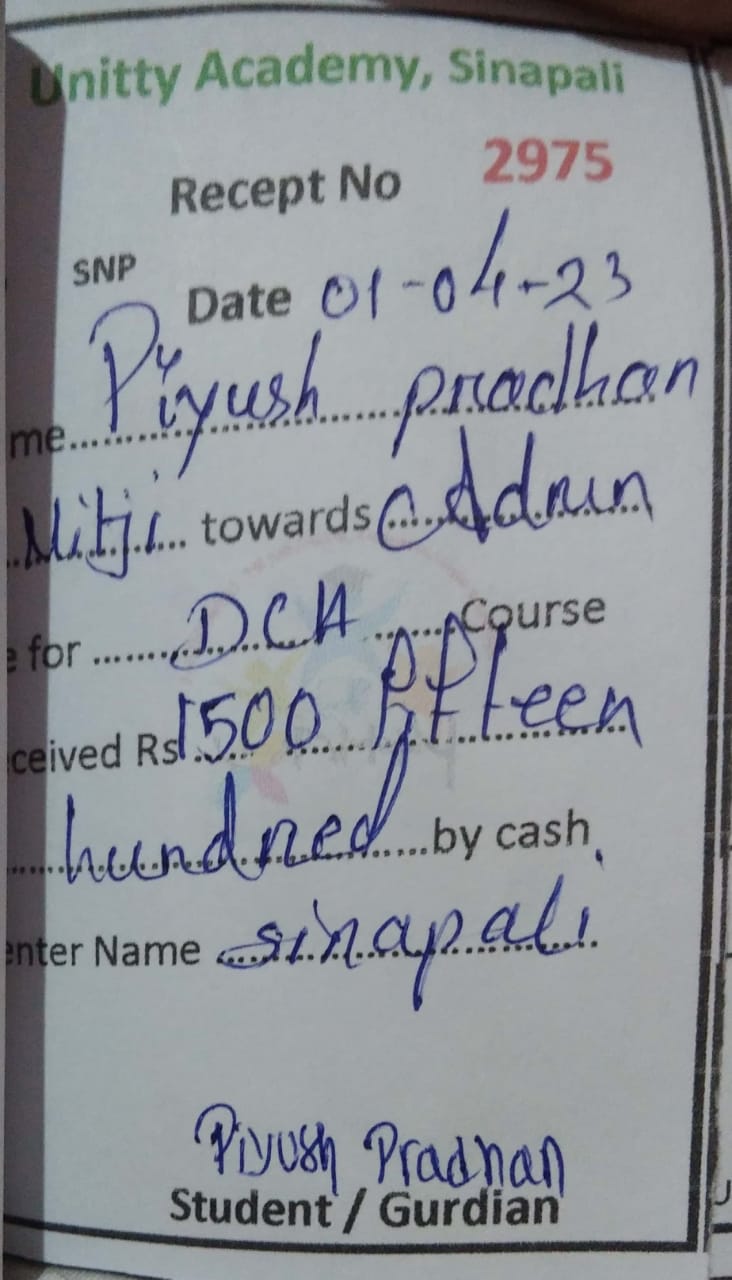 Unitty Academy, Sinapali
Recept No 2975
SNP
Date 01-04-23
me... Piyush pradhan
Nitji... towards... Admn
e for ... DCA ... Course
ceived Rs. 1500 fifteen
hundred ... by cash
enter Name sinapali
Piyush Pradhan
Student / Gurdian